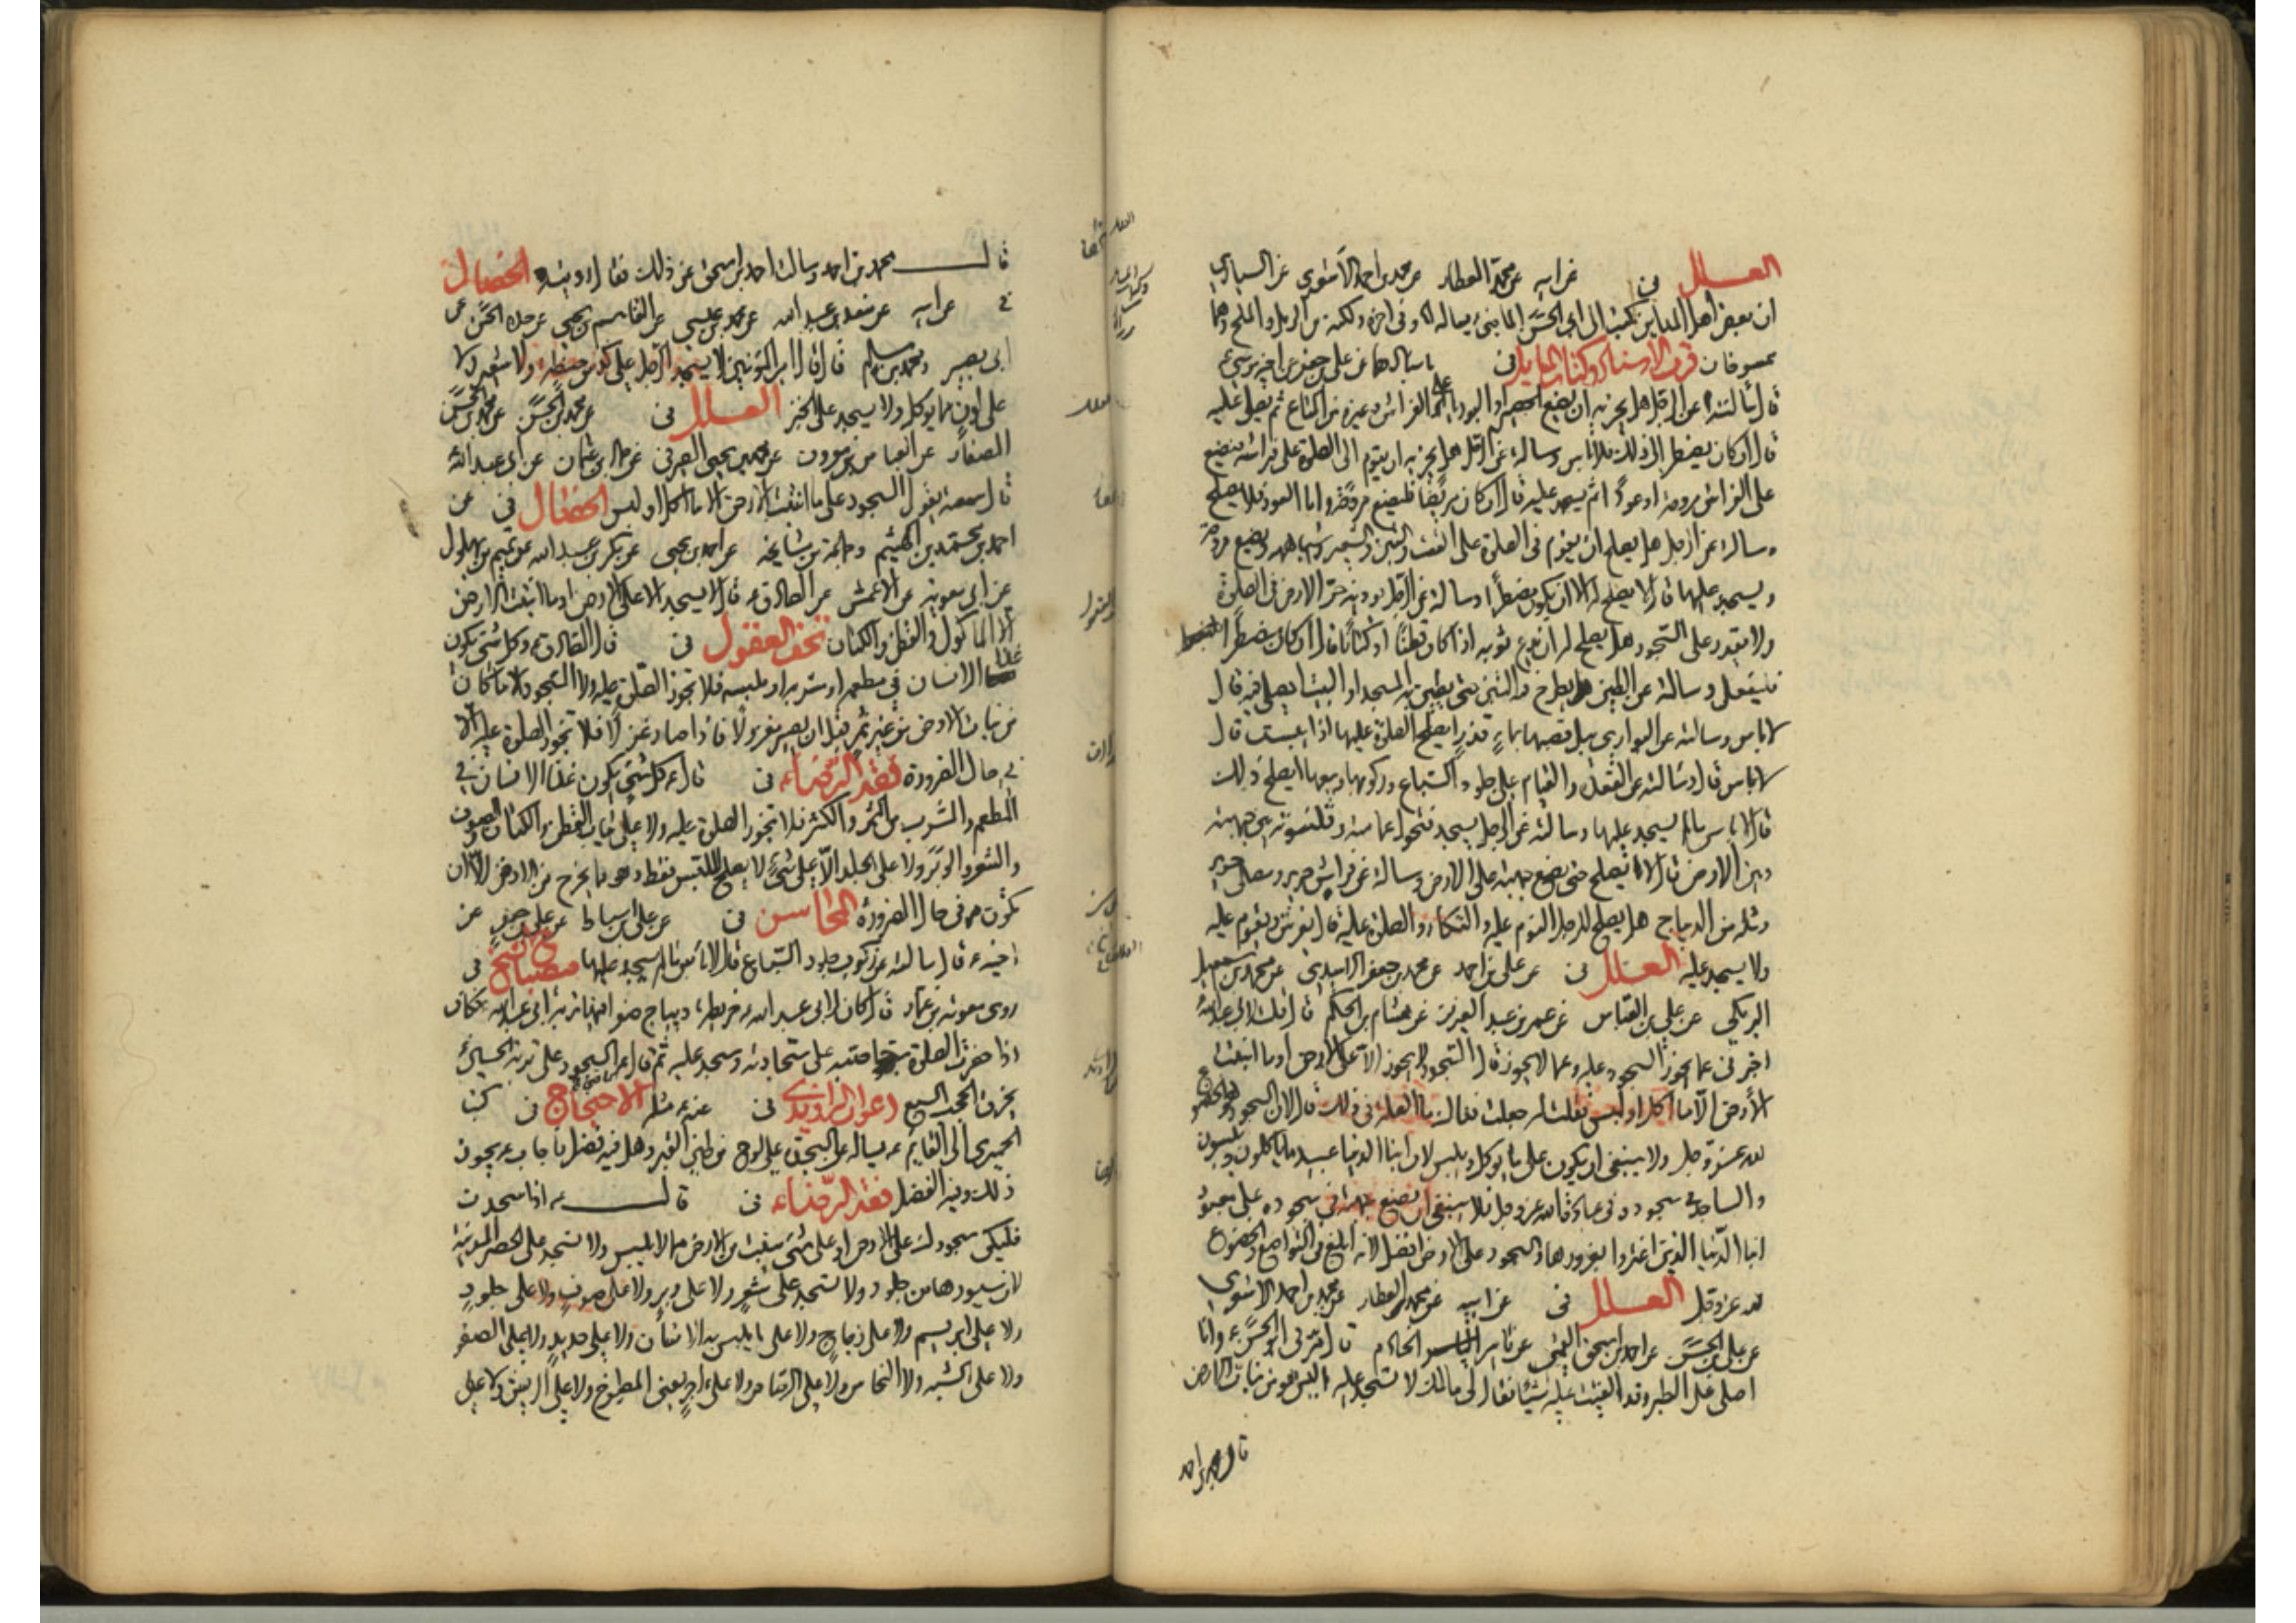 العلل في عن ابيه عن محمد العطار عن محمد بن احمد الاشعري عن السياري
ان بعض اهل المداين كتب الى ابي الحسن الماضي يساله
ممسوخان قرب الاسناد وكتاب المسايل في باسنادهما عن علي بن جعفر عن اخيه موسى ع
قال سالته عن الرجل هل يجزيه ان يضع الحصير او البوريا على الفراش وغيره من المتاع ثم يصلي عليه
قال ان كان يضطر الى ذلك فلا باس وسالته عن الرجل هل يجزيه ان يقوم الى الصلوة على فراشه فيضع
على الفراش مروحة او عودا ثم يسجد عليه قال ان كان مريضا فليضع مروحة واما العود فلا يصلح
وسالته عن الرجل هل يصلح ان يقوم في الصلوة على القت والتبن والشعير واشباهه ويضع مروحة
ويسجد عليها قال لا يصلح له الا ان يكون مضطرا وسالته عن الرجل يوذيه حر الارض في الصلوة
ولا يقدر على السجود هل يصلح له ان يضع ثوبه اذا كان قطنا او كتانا قال ان كان مضطرا
فليفعل وسالته عن الطين يطرح فيه التبن حتى يطين به المسجد او البيت ايصلي فيه قال
لا باس وسالته عن البواري يبل قصبها بماء قذر ايصلح الصلوة عليها اذا يبست قال
لا باس قال وسالته عن القعود والقيام على جلود السباع وركوبها وبيعها ايصلح ذلك
قال لا باس ما لم يسجد عليها وسالته عن الرجل يسجد فتحول عمامته وقلنسوته بين جبهته
وبين الارض قال لا يصلح حتى يضع جبهته على الارض وسالته عن فراش حرير ومصلى حرير
ومثله من الديباج هل يصلح للرجل النوم عليه والتكاة والصلوة عليه قال يفرش ويقوم عليه
ولا يسجد عليه العلل في عن علي بن احمد عن محمد بن جعفر الاسدي عن محمد بن اسمعيل
البرمكي عن علي بن العباس عن عمر بن عبد العزيز عن هشام بن الحكم قال قلت لابي عبد الله
اخبرني عما يجوز السجود عليه وعما لا يجوز قال السجود لا يجوز الا على الارض او ما انبتت
الارض الا ما اكل او لبس فقلت له جعلت فداك ما العلة في ذلك قال لان السجود هو الخضوع
لله عز وجل ولا ينبغي ان يكون على ما يوكل ويلبس لان ابناء الدنيا عبيد ما ياكلون ويلبسون
والساجد في سجوده في عبادة الله عز وجل فلا ينبغي ان يضع جبهته في سجوده على معبود
ابناء الدنيا الذين اغتروا بغرورها والسجود على الارض افضل لانه ابلغ في التواضع والخضوع
لله عز وجل العلل في عن ابيه عن محمد العطار عن محمد بن احمد الاشعري
عن علي بن الحسن عن احمد بن اسحق القمي عن ياسر الخادم قال مر بي ابو الحسن ع وانا
اصلي على الطبري وقد القيت عليه شيئا فقال لي مالك لا تسجد عليه اليس هو من نبات الارض
قال محمد بن احمد
قال محمد بن احمد وسالت احمد بن اسحق عن ذلك فقال رويته الخصال
في عن ابيه عن سعد بن عبد الله عن محمد بن عيسى عن القاسم بن يحيى عن جده الحسن عن
ابي بصير ومحمد بن مسلم قال قال امير المؤمنين لا يسجد الرجل على كدس حنطة ولا شعير ولا
على لون مما يوكل ولا يسجد على الخبز العلل في عن محمد بن الحسن عن محمد بن الحسن
الصفار عن العباس بن معروف عن محمد بن يحيى الصيرفي عن حماد بن عثمان عن ابي عبد الله
قال سمعته يقول السجود على ما انبتت الارض الا ما اكل او لبس الخصال في عن
احمد بن محمد بن الهيثم وجماعة من مشايخه عن احمد بن يحيى عن بكر بن عبد الله عن تميم بن بهلول
عن ابي معوية عن الاعمش عن الصادق ع قال لا يسجد الا على الارض او ما انبتت الارض
الا الماكول والقطن والكتان تحف العقول في قال الصادق ع وكل شيء يكون
غذاء الانسان في مطعمه او مشربه او ملبسه فلا تجوز الصلوة عليه ولا السجود الا ما كان
من نبات الارض من غير ثمر قبل ان يصير مغزولا فاذا صار غزلا فلا تجوز الصلوة عليه الا
في حال الضرورة فقه الرضاء في قال ع كل شيء يكون غذاء الانسان في
المطعم والمشرب من الثمر والكثر فلا تجوز الصلوة عليه ولا على ثياب القطن والكتان والصوف
والشعر والوبر ولا على الجلد الا على شيء لا يصلح للبس فقط وهو مما يخرج من الارض الا ان
تكون في حال الضرورة المحاسن في عن علي بن اسباط عن علي بن جعفر عن
اخيه ع قال سالته عن ركوب جلود السباع قال لا باس ما لم يسجد عليها مصباح الشيخ في
روى معوية بن عمار قال كان لابي عبد الله ع خريطة ديباج صفراء فيها تربة ابي عبد الله فكان
اذا حضرت الصلوة صبه على سجادته وسجد عليه ثم قال ع السجود على تربة الحسين ع
يخرق الحجب السبع دعوات الراوندي في عنه ع مثله الاحتجاج في كتب
الحميري الى القائم ع يساله عن السجدة على لوح من طين القبر وهل فيه فضل فاجاب ع يجوز
ذلك وفيه الفضل فقه الرضاء في قال ع اذا سجدت
فليكن سجودك على الارض او على شيء ينبت من الارض مما لا يلبس ولا تسجد على الحصر المدنية
لان سيورها من جلود ولا تسجد على شعر ولا على وبر ولا على صوف ولا على جلود
ولا على ابريسم ولا على زجاج ولا على ما يلبس به الانسان ولا على حديد ولا على الصفر
ولا على الشبه ولا النحاس ولا على الرصاص ولا على اجر يعني المطبوخ ولا على الريش ولا على